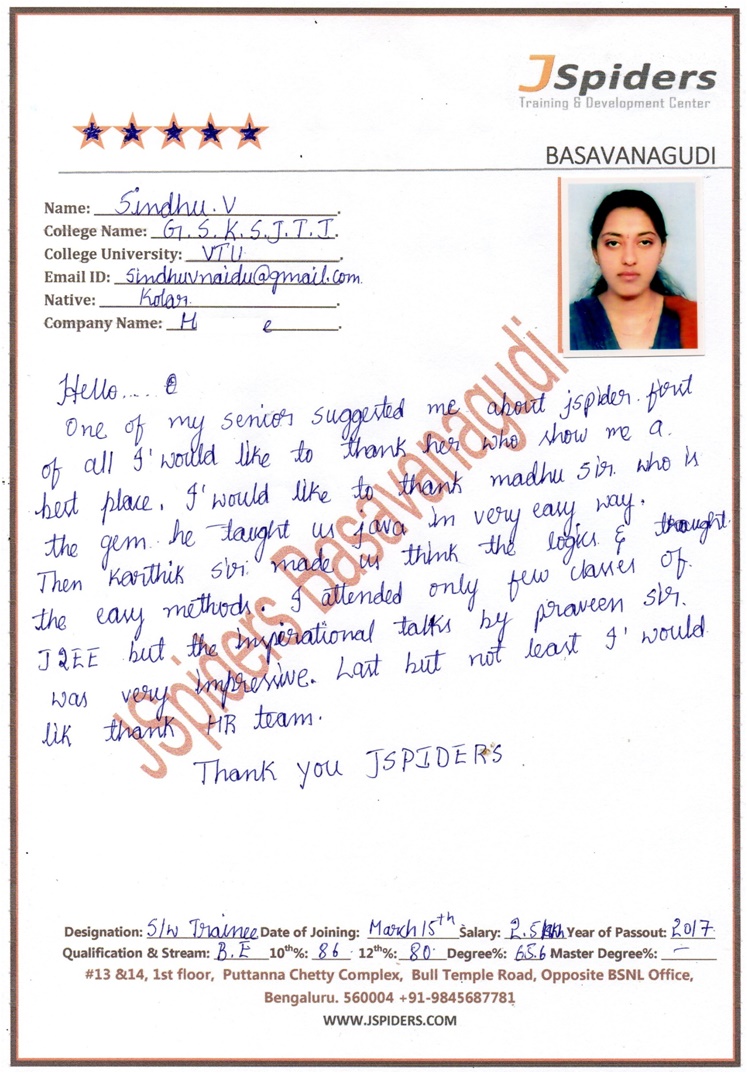 JSpiders
Training & Development Center
BASAVANAGUDI
Name: Sindhu. V
College Name: G. S. K. S. J. T. I.
College University: VTU
Email ID: sindhuvnaidu@gmail.com
Native: Kolar
Company Name: H e
Hello....
One of my senior suggested me about jspider. first
of all I'would like to thank her who show me a
best place. I'would like to thank madhu sir who is
the gem he taught us java in very easy way.
Then Karthik sir made us think the logics & traught
the easy methods. I attended only few classes of
J2EE but the inspirational talks by praveen sir.
was very impressive. Last but not least I'would
lik thank HR team.
Thank you JSPIDERS
JSpiders Basavanagudi
Designation: S/w Trainee Date of Joining: March 15th Salary: 2.5 Year of Passout: 2017
Qualification & Stream: B.E 10th%: 86 12th%: 80 Degree%: 65.6 Master Degree%: –
#13 &14, 1st floor, Puttanna Chetty Complex, Bull Temple Road, Opposite BSNL Office,
Bengaluru. 560004 +91-9845687781
WWW.JSPIDERS.COM